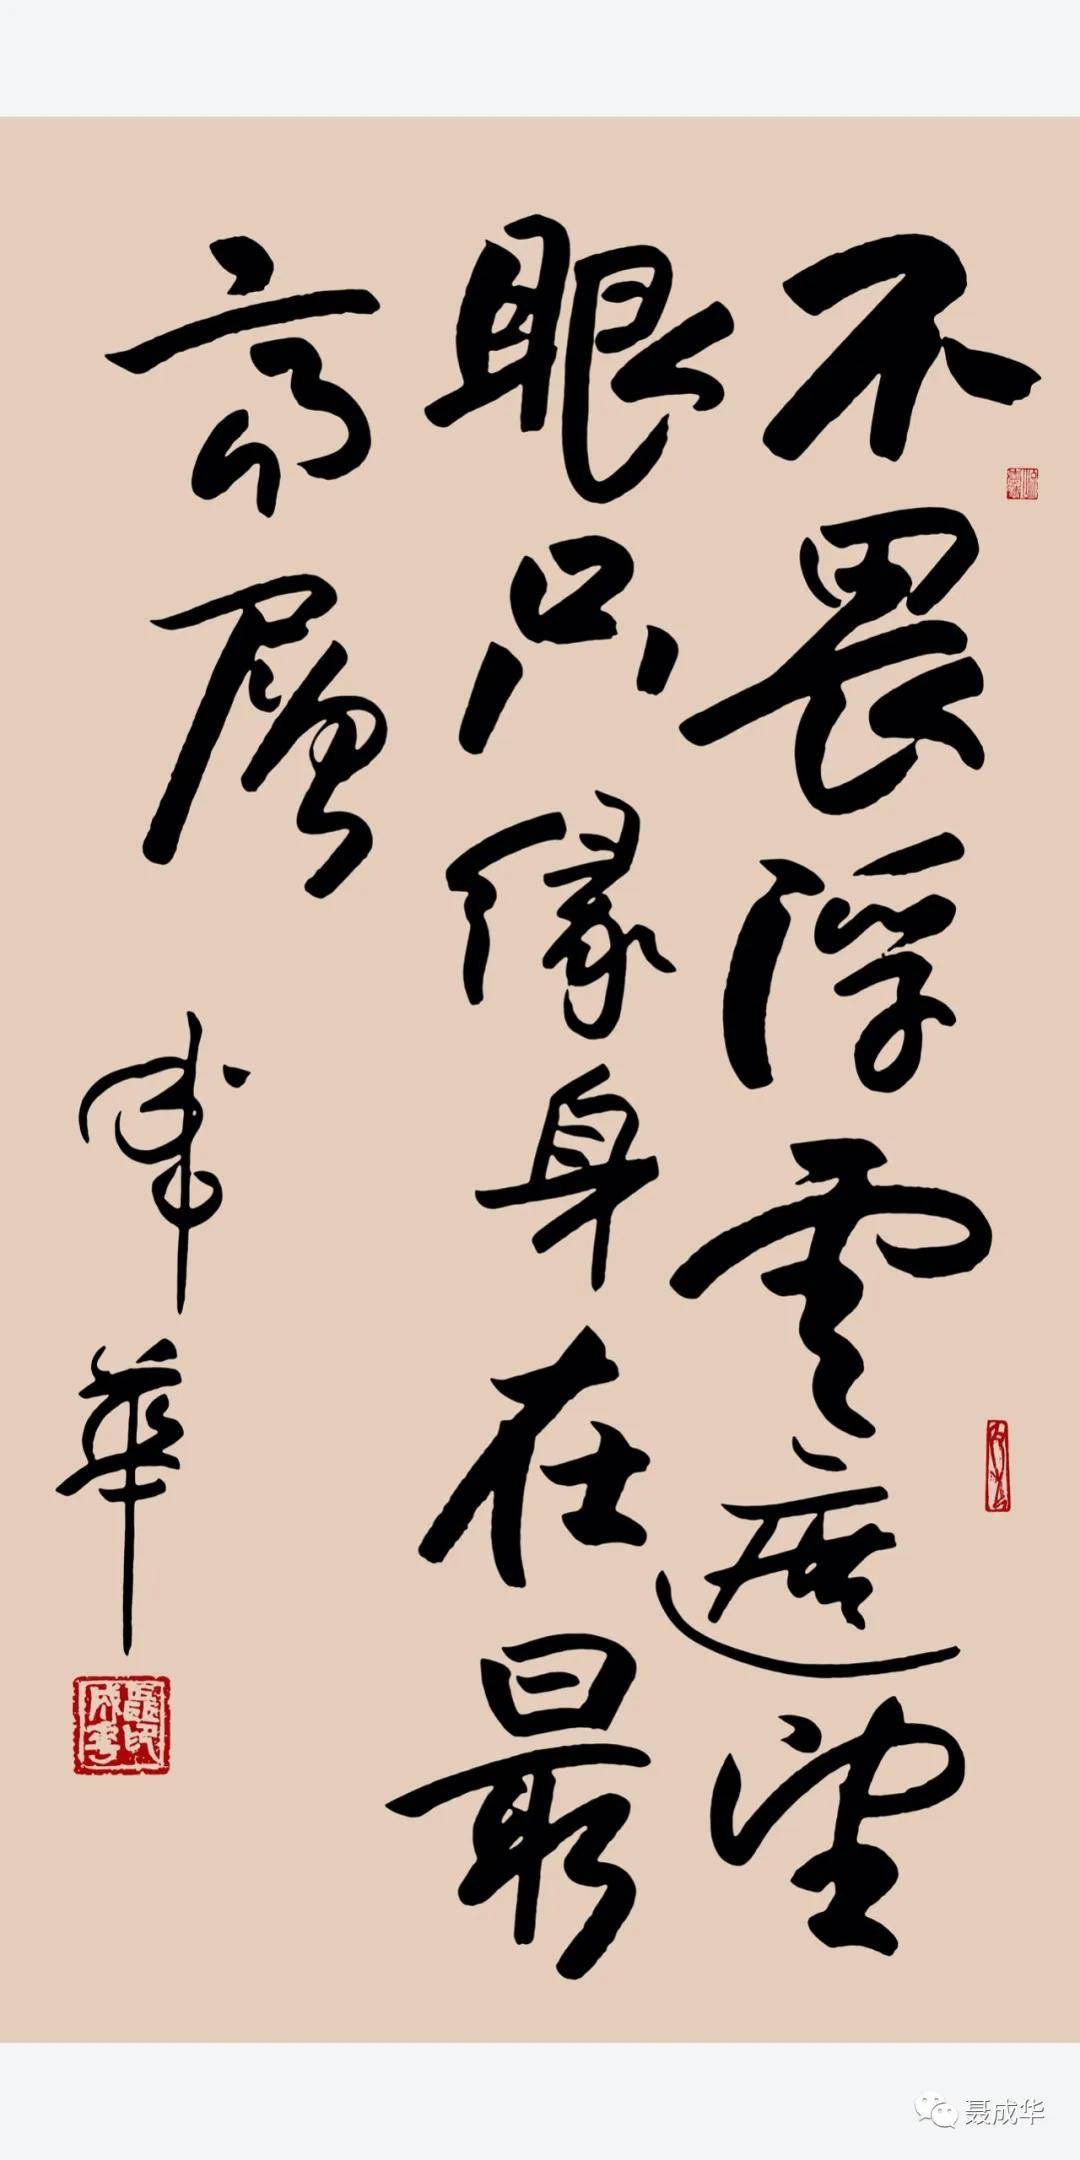 不畏浮雲遮望
眼只緣身在最
高層
成華
聂成华